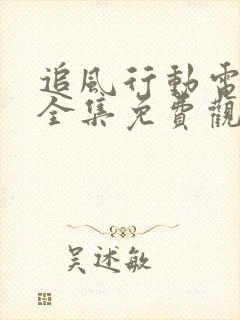 追風行動電
全集免費觀
吳述敏